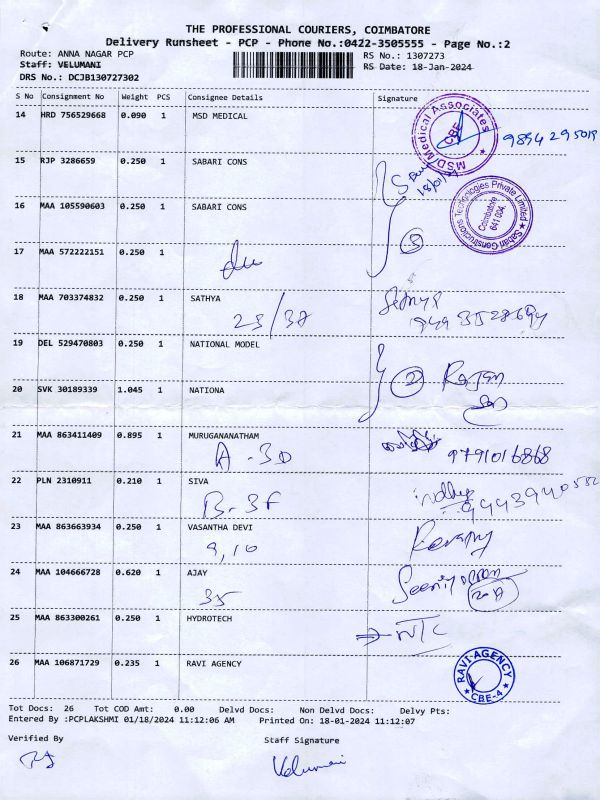 THE PROFESSIONAL COURIERS, COIMBATORE
Delivery Runsheet - PCP - Phone No.:0422-3505555 - Page No.:2
Route: ANNA NAGAR PCP
RS No.: 1307273
Staff: VELUMANI
RS Date: 18-Jan-2024
DRS No.: DCJB130727302
S No Consignment No Weight PCS Consignee Details Signature
14 HRD 756529668 0.090 1 MSD MEDICAL
MSD/Medical Associates
CBE
15 RJP 3286659 0.250 1 SABARI CONS
16 MAA 105590603 0.250 1 SABARI CONS
Sabari Constructions Technologies Private Limited
Coimbatore
641 004.
3
17 MAA 572222151 0.250 1
18 MAA 703374832 0.250 1 SATHYA
23/37
19 DEL 529470803 0.250 1 NATIONAL MODEL
2 Rajan
20 SVK 30189339 1.045 1 NATIONA
21 MAA 863411409 0.895 1 MURUGANANATHAM
A - 3D 9791016868
22 PLN 2310911 0.210 1 SIVA
B- 3F
23 MAA 863663934 0.250 1 VASANTHA DEVI
9,10
24 MAA 104666728 0.620 1 AJAY
35
25 MAA 863300261 0.250 1 HYDROTECH
NTC
26 MAA 106871729 0.235 1 RAVI AGENCY
RAVI-AGENCY
CBE-4
Tot Docs: 26 Tot COD Amt: 0.00 Delvd Docs: Non Delvd Docs: Delvy Pts:
Entered By :PCPLAKSHMI 01/18/2024 11:12:06 AM Printed On: 18-01-2024 11:12:07
Verified By Staff Signature
Velumani